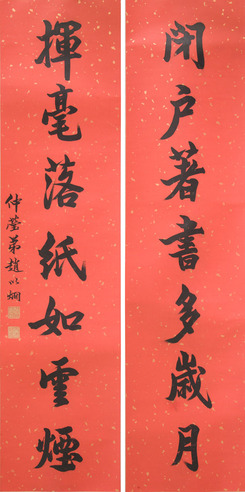 閉戶著書多歲月
揮毫落紙如雲煙
仲瑩弟趙以炯